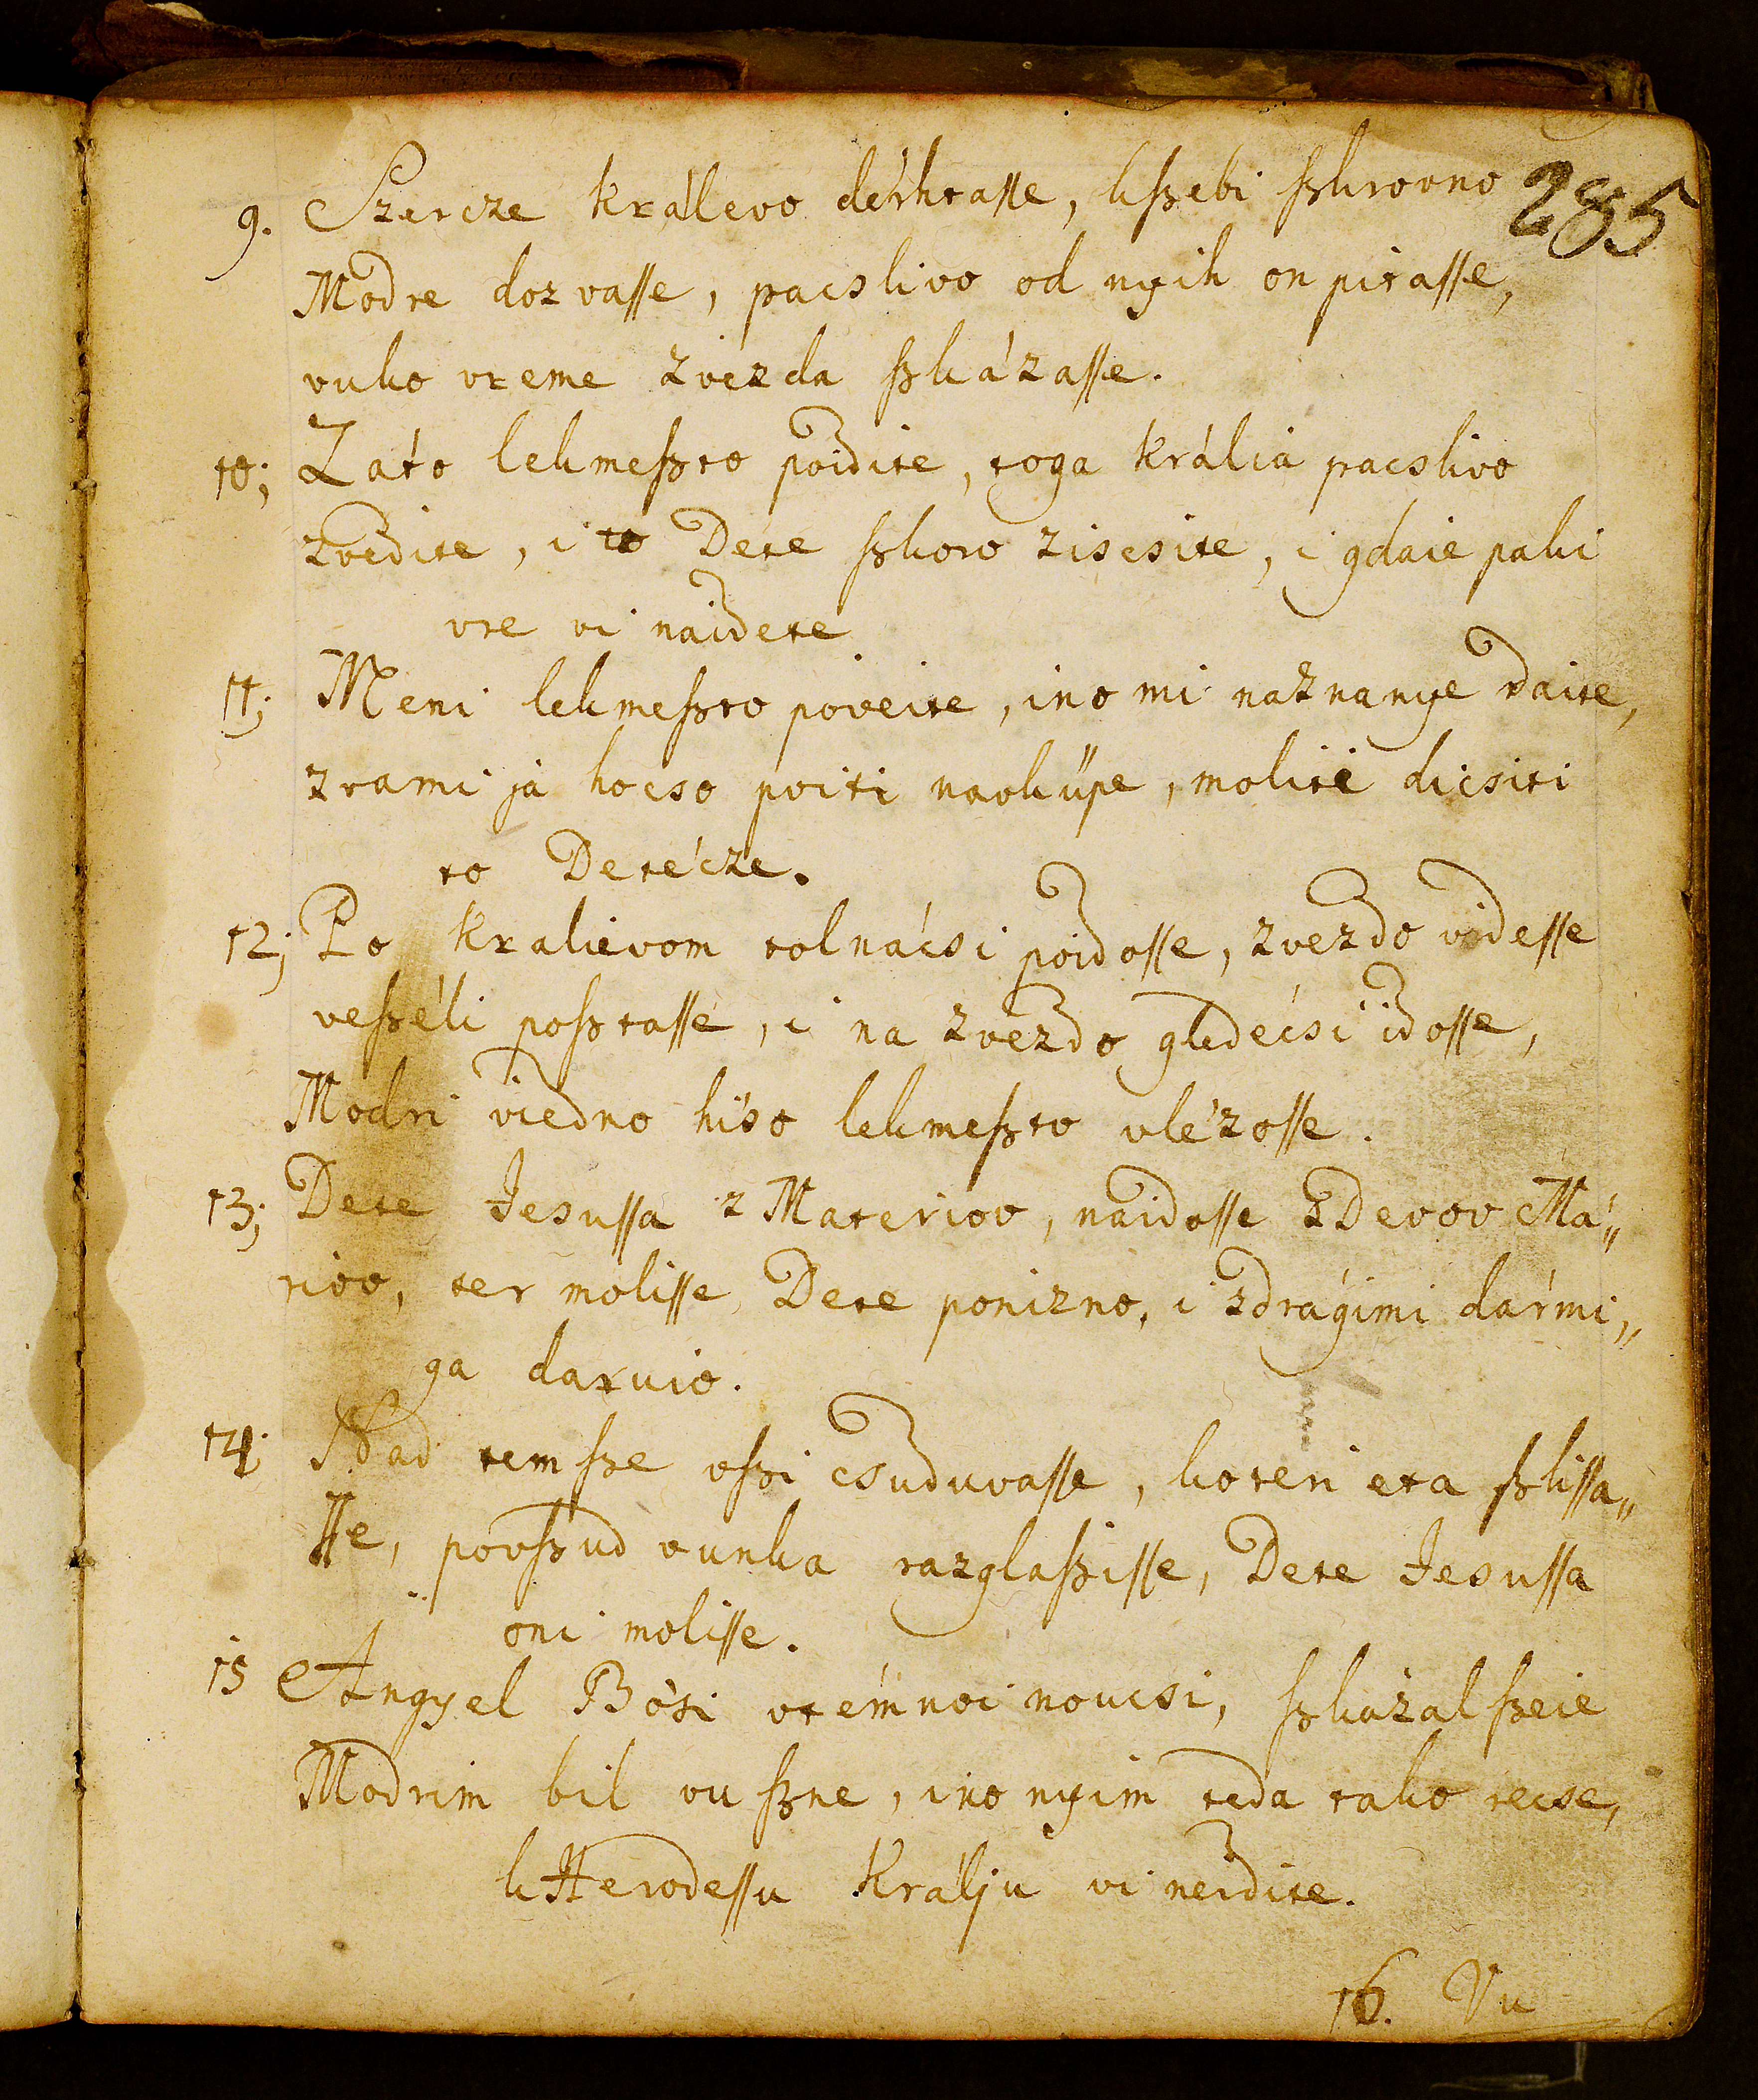 285
9. Szercze králevo dérhtasse, kſzebi ſzkrovno
Modre dozvasse, pacslivo od nyih on pitasse,
vuko vreme zvezda ſzkázasse.
10; Zato lekmeſzto poidite, toga krália pacslivo
zvedite, i to Dete ſzkoro ziscsite, i gdaie paki
vre vi naidete
11; Meni lekmeſzto poveite, ino mi naznanye daite,
z vami já hocso poiti navküpe, molite dicsiti
to Detécze.
12; Po kralievom tolnácsi poidosse, zvezdo videsse
veſzéli poſztasse, i na zvezdo gledécsi idosse,
Modri viedno hiso lekmeſzto vlézosse.
13; Dete Jesussa z Materiov, naidosse z Devov Má„
riov, ter molisse Dete ponizno, i zdrágimi dármi„
ga daruio.
14; Nad tem ſze vſzi csuduvasse, koteri eta ſzlissa„
sse, povſzud vunka razglaſzisse, Dete Jesussa
oni molisse.
15 Angyel Bósi vtémnoi noucsi, ſzkázal ſzeie
Modrim bil vu ſzne, ino nyim teda tako recse,
k Herodessu Králju vi neidite.
16. Vu